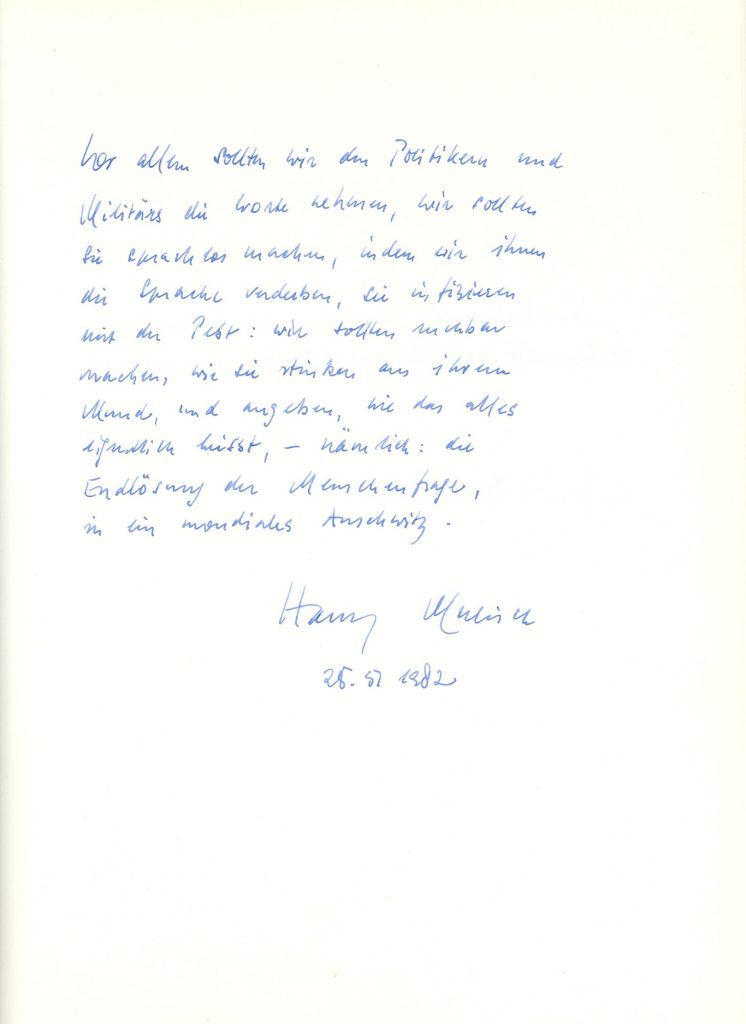 Vor allem sollten wir den Politikern und
Militärs die Worte nehmen, wir sollten
sie sprachlos machen, indem wir ihnen
die Sprache verderben, sie infizieren
mit der Pest: wir sollten
machen, wie sie stinken aus ihrem
Munde, und angeben, wie das alles
eigentlich heisst, – nämlich: die
Endlösung der Menschenfrage,
in ein mondiales Auschwitz.
Harry Mulisch
1982